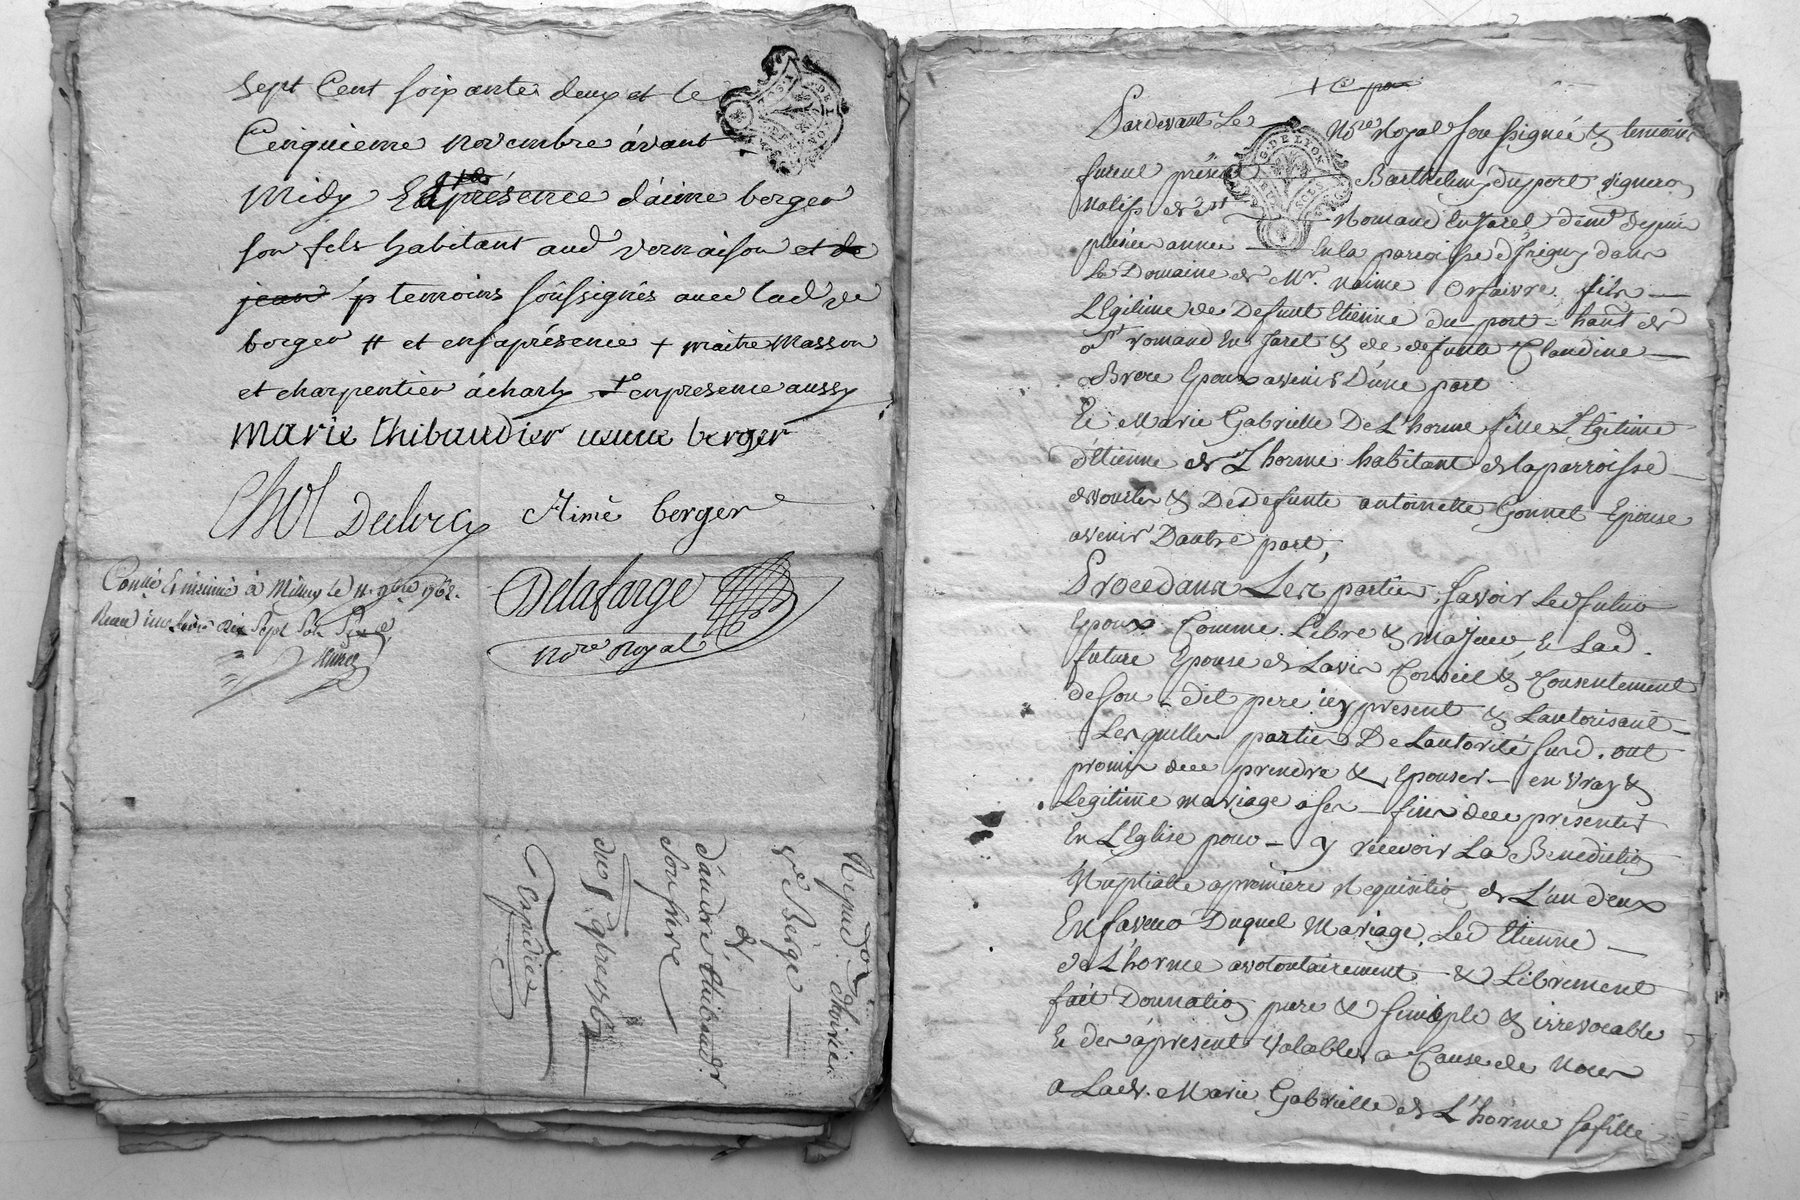 Sept Cent soixante deux et le
Cinquieme novembre avant
Midy En présence d'aime berger
son fils habitant aud vernaison et de
jean p temoins soussignés avec lad ve
berger # et en sa présence + maitre Masson
et charpentier a charly + en presence aussy
marie thibaudier veuve berger
Aimé berger
Delafarge
Nore royal
Conlé & insinué à Millery le 11 9bre 1762.
Reçu
Repud.on d'hoirie
Ve Berge
d'andré thibaudr
son frere
du 5 9bre 1762
Expediée
G. DE LYON
SOLS
Pardevant Le Nore Royal soussigné & temoins
furent présent Barthelemy duport vigneron
natif de St Romand en Jarel demt depuis
plusieurs année en la paroisse d'Irigny dans
Le Domaine de Mr. naime Orfaivre fils
Légitime de Defunt Etienne du port habt de
St romand en Jarel & de defunte Claudine
Epoux avenir D'une part
Et Marie Gabrielle De L'horme fille Légitime
d'Etienne de L'horme habitant de la parroisse
de vourles & De Defunte antoinette Gonnet Epouse
avenir D'autre part,
Procedant Les parties, savoir Led futur
Epoux Comme Libre & majeur, & Lad.
future Epouse de L'avis Conseil & Consentement
de son dit pere icy present & Lautorisant
Lesquelles parties De Lautorité susd. ont
promis de se prendre & Epouser en vray &
Legitime mariage a ses fins de se presenter
En L'Eglise pour y recevoir La Benediction
Nuptialle a premiere Requisition de L'un deux
En faveur Duquel Mariage, Led Etienne
de L'horme a volontairement & Librement
fait Donnation pure & simple & irrevocable
Et des a présent valable a Cause de Noces
a Lade. Marie Gabrielle de L'horme sa fille